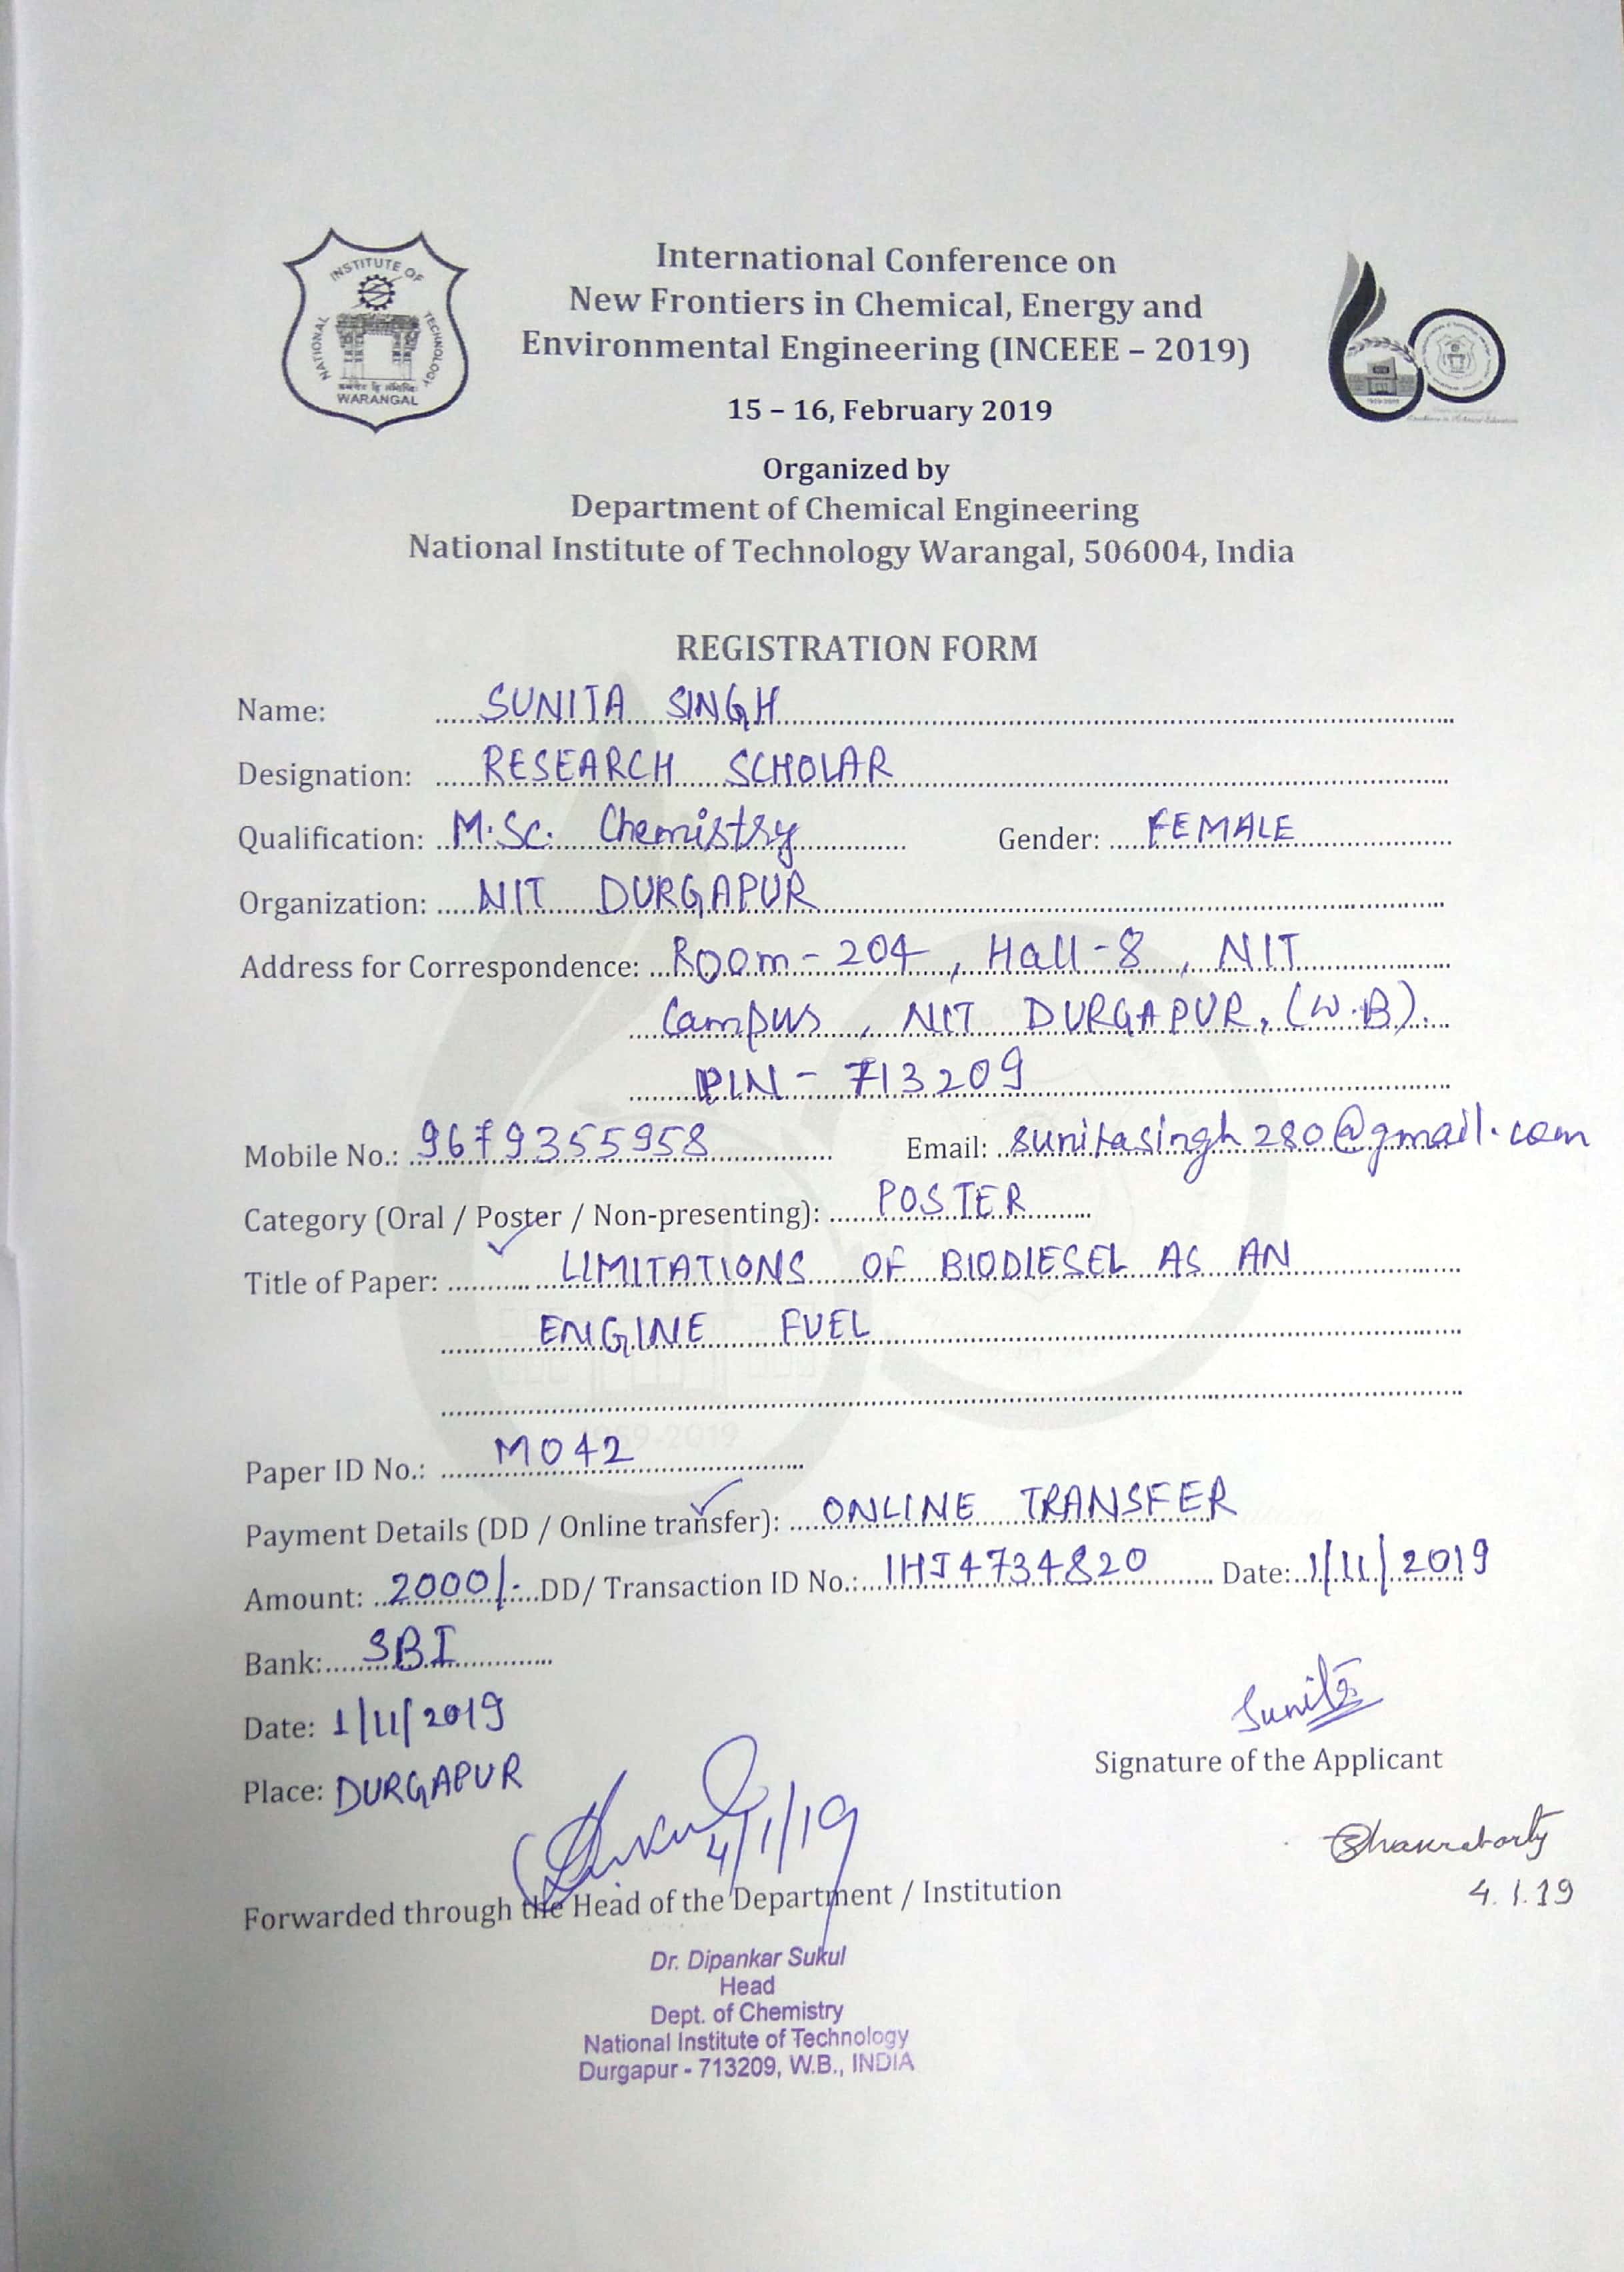 INSTITUTE OF
NATIONAL
TECHNOLOGY
WARANGAL
International Conference on
New Frontiers in Chemical, Energy and
Environmental Engineering (INCEEE – 2019)
15 – 16, February 2019
Organized by
Department of Chemical Engineering
National Institute of Technology Warangal, 506004, India
REGISTRATION FORM
Name: SUNITA SINGH
Designation: RESEARCH SCHOLAR
Qualification: M.Sc. Chemistry Gender: FEMALE
Organization: NIT DURGAPUR
Address for Correspondence: Room-204, Hall-8, NIT
Campus, NIT DURGAPUR, (W.B).
PIN - 713209
Mobile No.: 9679355958 Email: sunitasingh280@gmail.com
Category (Oral / Poster / Non-presenting): POSTER
Title of Paper: LIMITATIONS OF BIODIESEL AS AN
ENGINE FUEL
Paper ID No.: M042
Payment Details (DD / Online transfer): ONLINE TRANSFER
Amount: 2000/- DD/ Transaction ID No.: IHJ4734820 Date: 1/11/2019
Bank: SBI
Date: 1/11/2019
Sunita
Signature of the Applicant
Place: DURGAPUR
4/1/19
Chakraborty
4.1.19
Forwarded through the Head of the Department / Institution
Dr. Dipankar Sukul
Head
Dept. of Chemistry
National Institute of Technology
Durgapur - 713209, W.B., INDIA